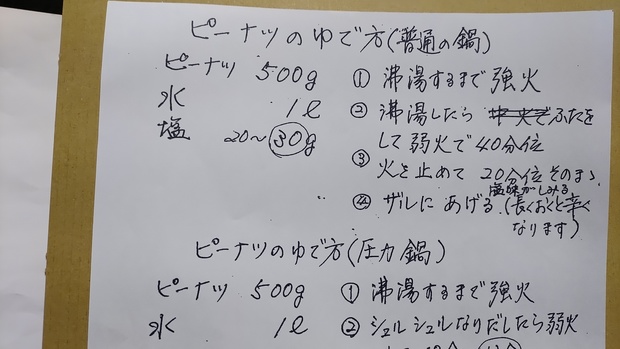 ピーナツのゆで方(普通の鍋)
ピーナツ 500g
水 1ℓ
塩 20〜30g
① 沸湯するまで強火
② 沸湯したら 中火で ふたを
して弱火で40分位
③ 火を止めて 20分位そのまゝ
塩味がしみる
④ ザルにあげる(長くおくと辛く
なります)
ピーナツのゆで方(圧力鍋)
ピーナツ 500g
水 1ℓ
① 沸湯するまで強火
② シュルシュルなりだしたら弱火